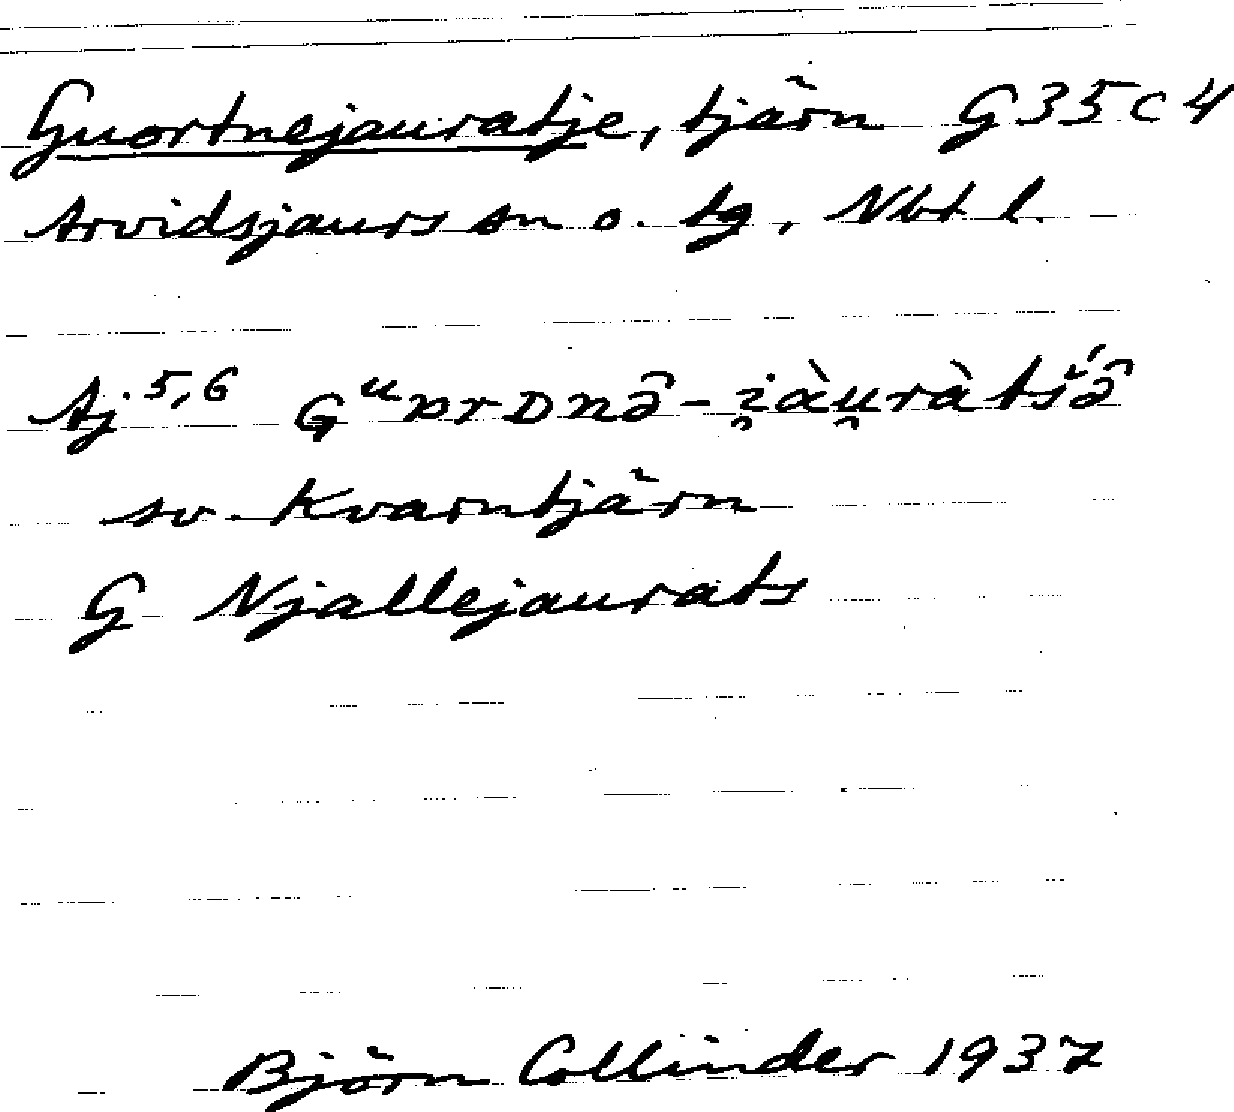 Guortnejauratje, tjärn G35c4
Arvidsjaurs sn o. tg, Nbt l.
Aj 5,6 Gᵘɒrᴅnə̑-i̯àu̯ràtš́ə̑
sv. Kvarntjärn
G Njallejaurats
Björn Collinder 1937